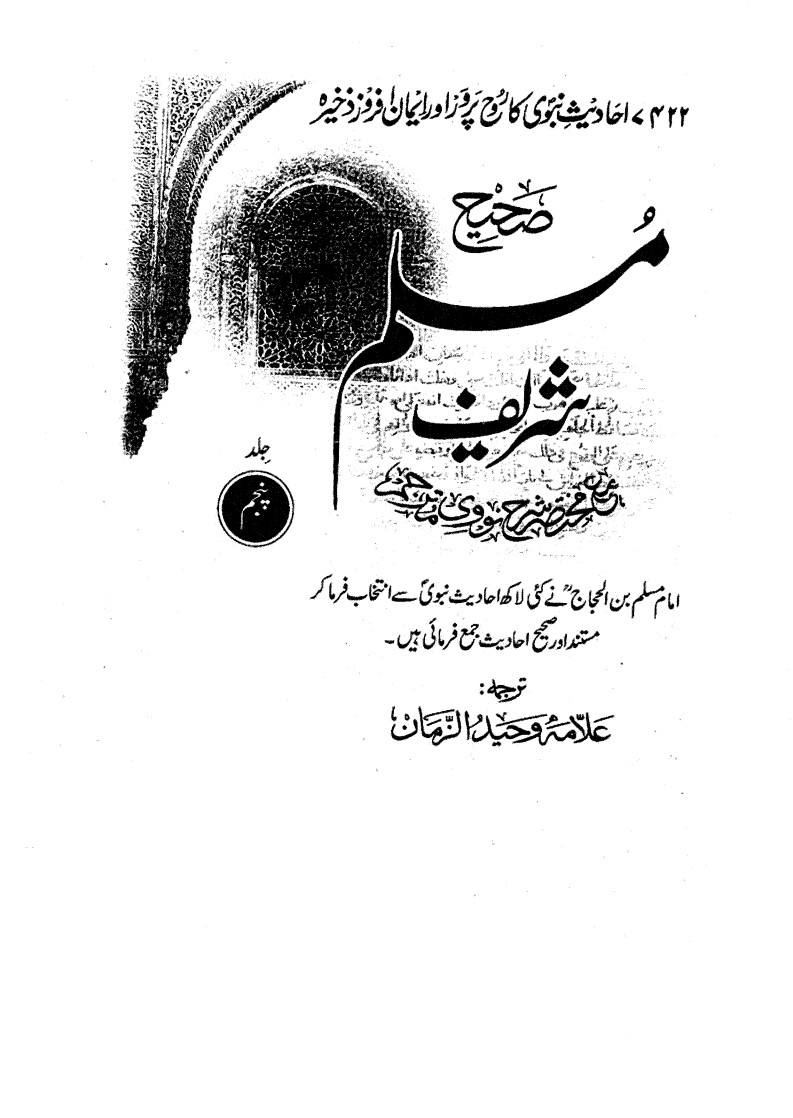 ۷۴۲۲ احادیثِ نبوی کا رُوح پرور اور ایمان افروز ذخیرہ
صَحِیْح
مُسلم
شریف
جِلد
پنجم
مع مختصر شرح نووی مترجم
امام مسلم بن الحجاجؒ نے کئی لاکھ احادیث نبویؐ سے انتخاب فرما کر
مستند اور صحیح احادیث جمع فرمائی ہیں۔
ترجمہ:
عَلّامَہ وَحِیدُ الزَّمَان